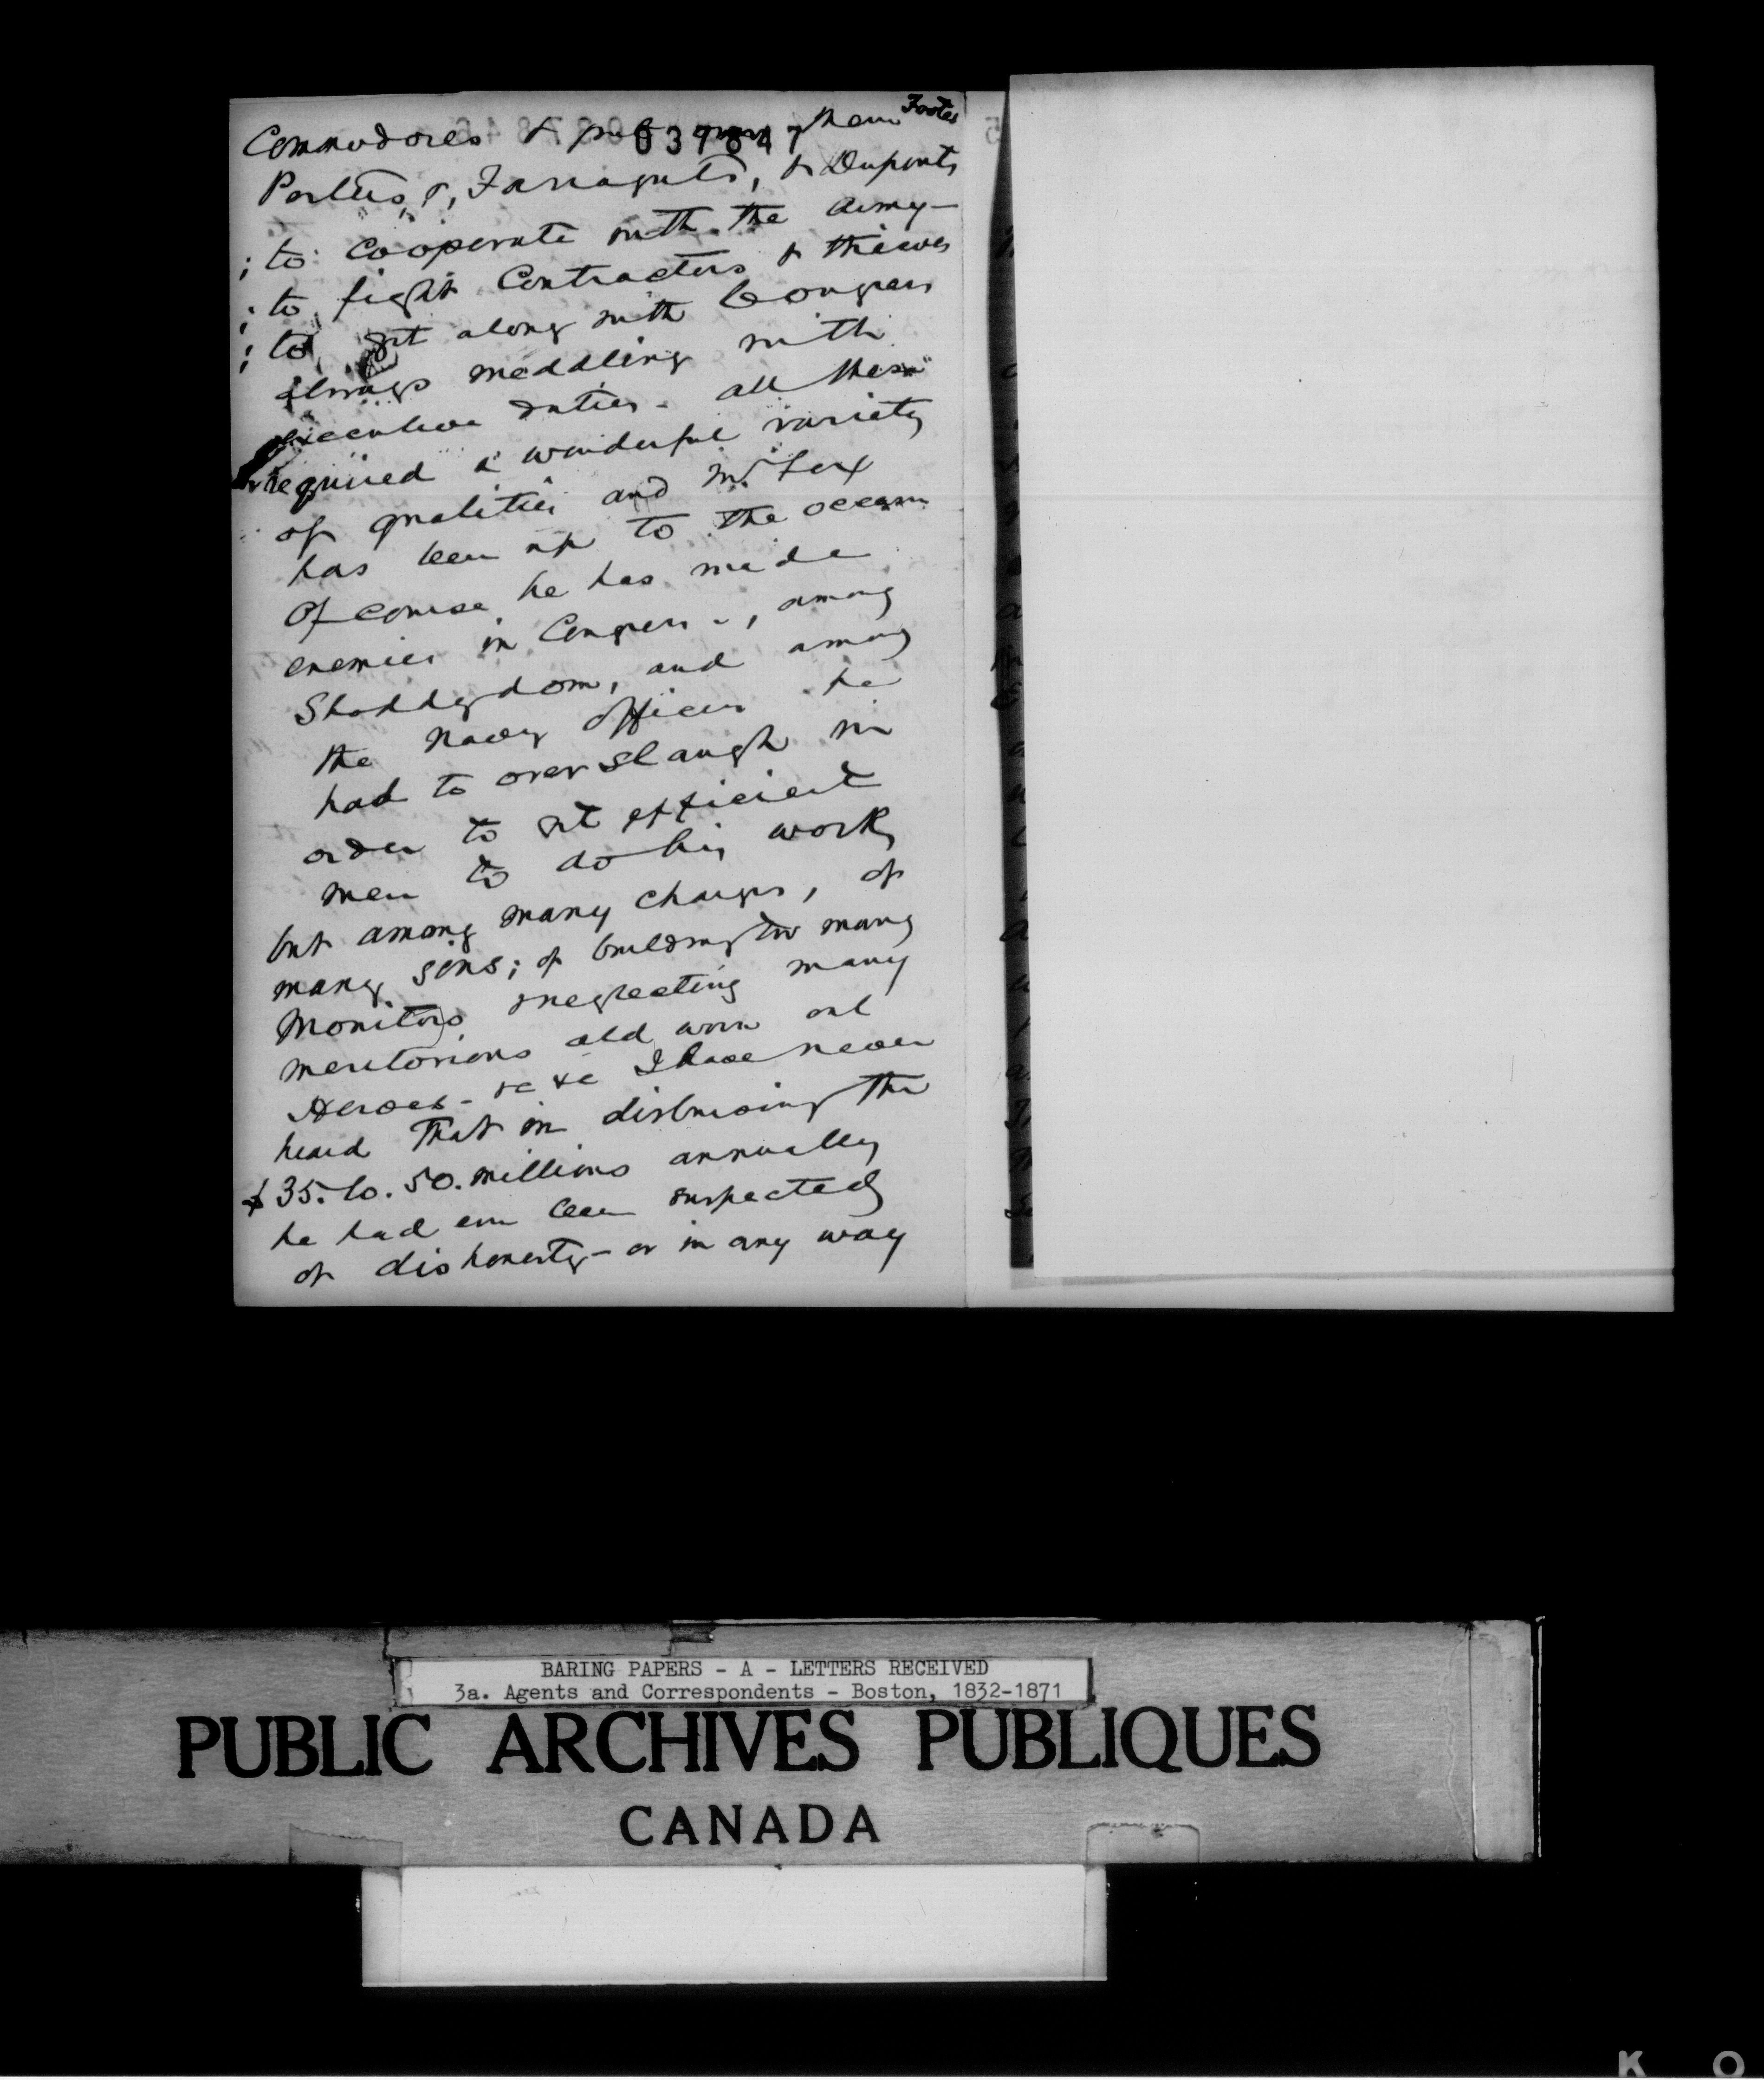 Commodores & put over them Footes
037847
Porters, &, Farraguts, & Duponts
; to cooperate with the army —
; to fight Contractors & thieves
; to get along with Congress
always meddling with
executive duties - all these
required a wonderful variety
of qualities and Mr Fox
has been up to the occasion
Of course he has made
enemies in Congress -, among
Shoddydom, and among
the Navy officers he
had to overslaugh in
order to get efficient
men to do his work,
but among many charges, of
many sins; of building too many
Monitors & neglecting many
meritorious old worn out
Heroes - &c &c I have never
heard that in disbursing the
$35. to. 50. millions annually
he had ever been suspected
of dishonesty - or in any way
BARING PAPERS - A - LETTERS RECEIVED
3a. Agents and Correspondents - Boston, 1832-1871
PUBLIC ARCHIVES PUBLIQUES
CANADA
K O